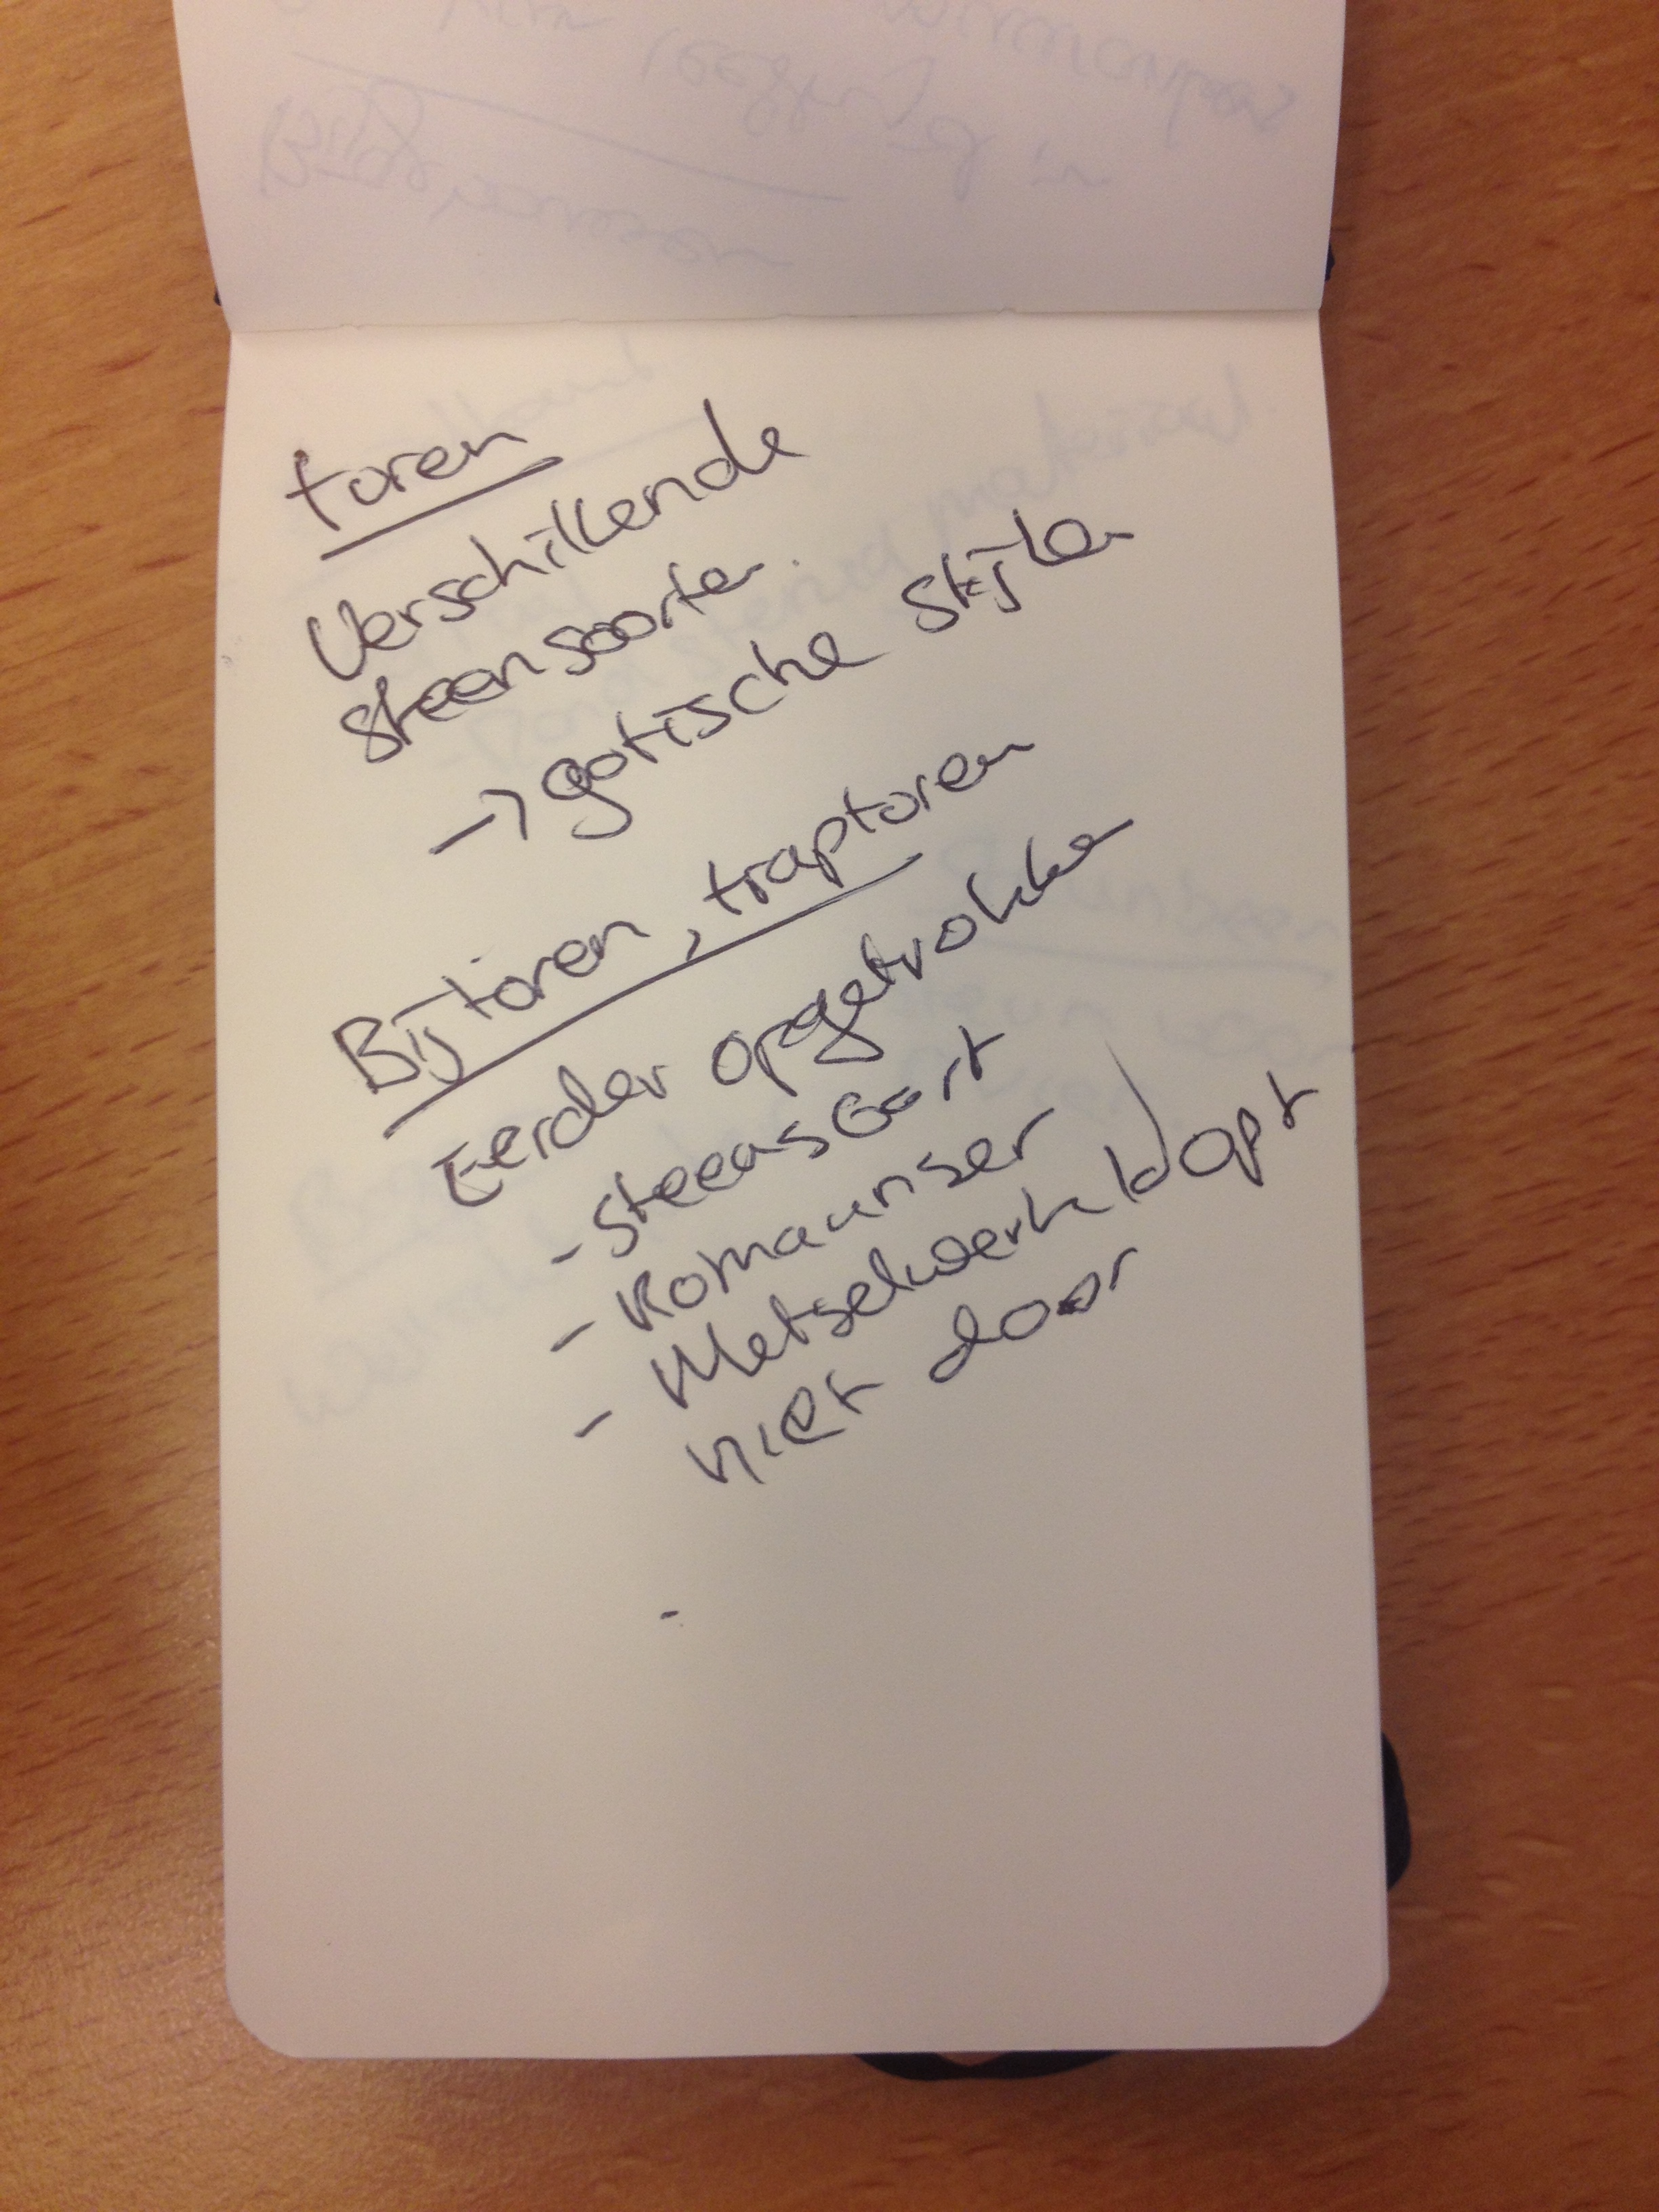 toren
Verschillende
steensoorten
→ gotische stijlen
Bijtoren, traptoren
Eerder opgetrokken
- steensoort
- Romaanser
- Metselwerk loopt
niet door
-